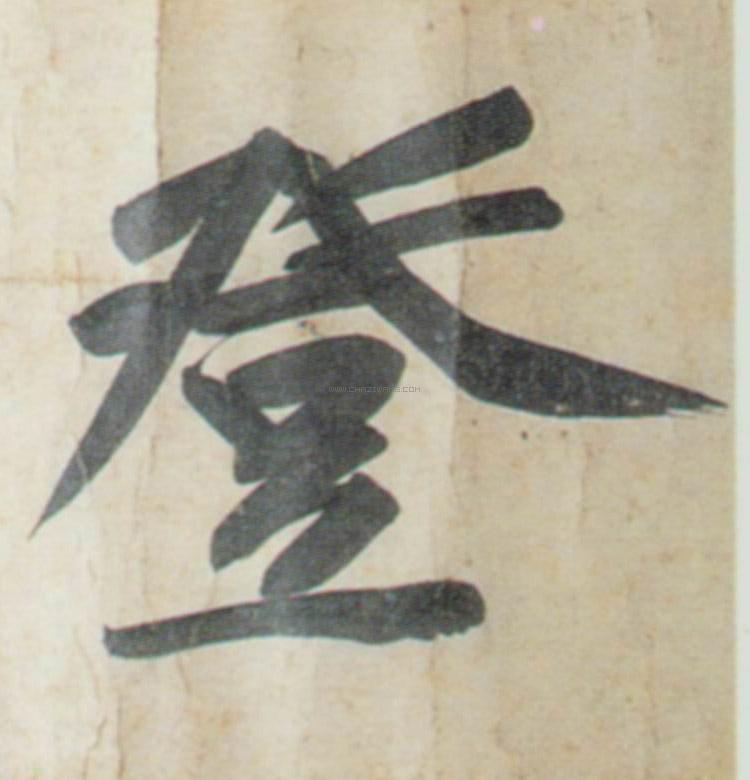 登
WWW.CHAZIWANG.COM